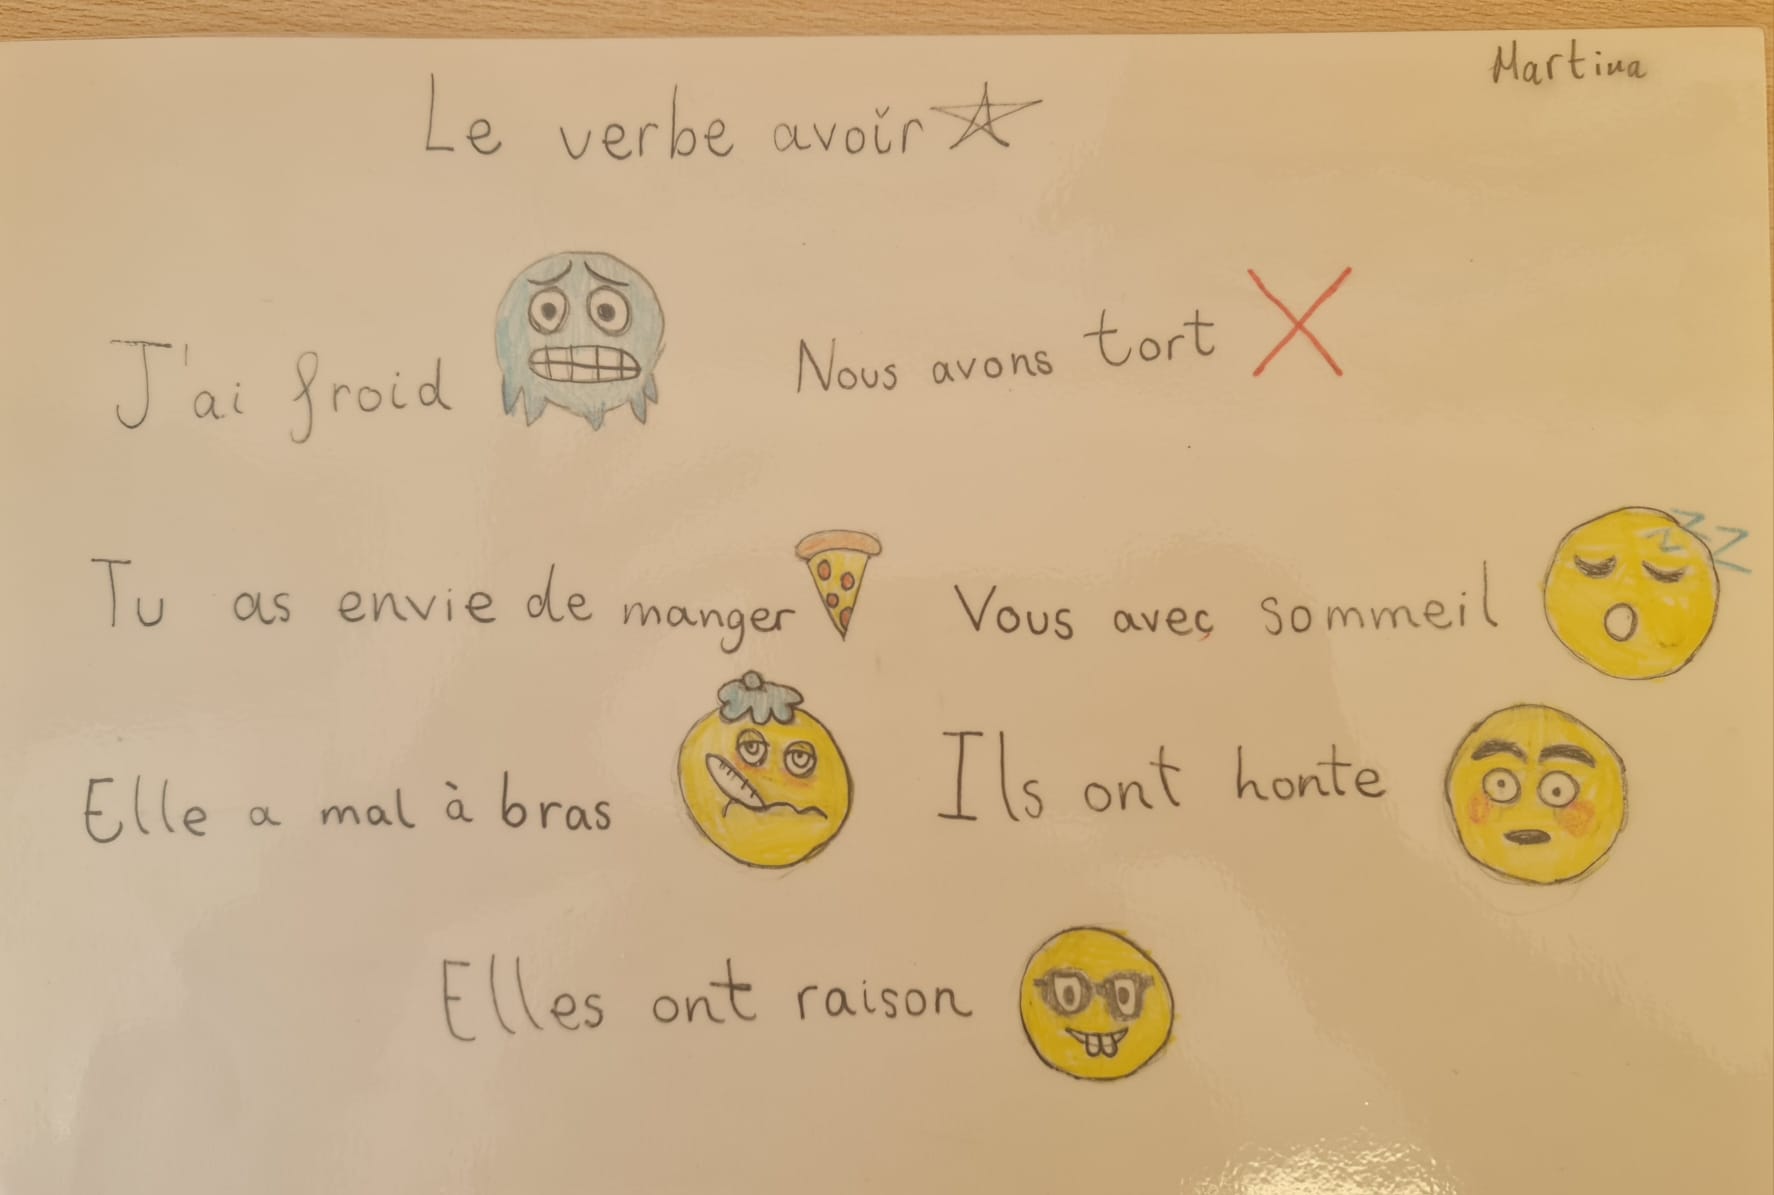 Martina
Le verbe avoir
J'ai froid
Nous avons tort
Tu as envie de manger
Vous aveç sommeil
Elle a mal à bras
Ils ont honte
Elles ont raison